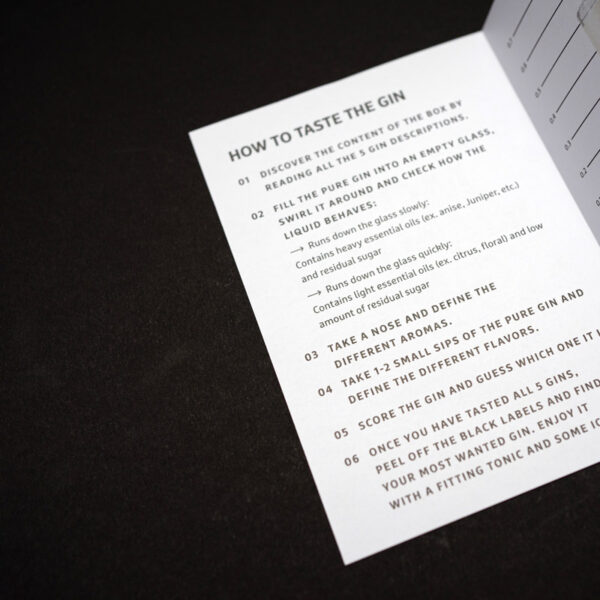 HOW TO TASTE THE GIN
01 DISCOVER THE CONTENT OF THE BOX BY
READING ALL THE 5 GIN DESCRIPTIONS.
02 FILL THE PURE GIN INTO AN EMPTY GLASS,
SWIRL IT AROUND AND CHECK HOW THE
LIQUID BEHAVES:
→ Runs down the glass slowly:
Contains heavy essential oils (ex. anise, Juniper, etc.)
and residual sugar
→ Runs down the glass quickly:
Contains light essential oils (ex. citrus, floral) and low
amount of residual sugar
03 TAKE A NOSE AND DEFINE THE
DIFFERENT AROMAS.
04 TAKE 1-2 SMALL SIPS OF THE PURE GIN AND
DEFINE THE DIFFERENT FLAVORS.
05 SCORE THE GIN AND GUESS WHICH ONE IT
06 ONCE YOU HAVE TASTED ALL 5 GINS,
PEEL OFF THE BLACK LABELS AND FIND
YOUR MOST WANTED GIN. ENJOY IT
WITH A FITTING TONIC AND SOME